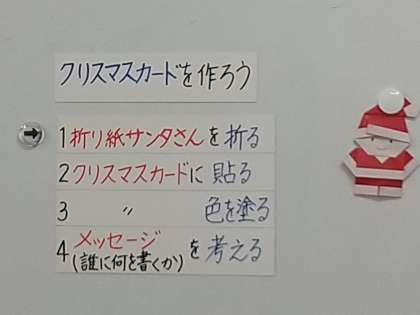 クリスマスカードを作ろう
1折り紙サンタさんを折る
2クリスマスカードに貼る
3 〃 色を塗る
4メッセージを考える
(誰に何を書くか)